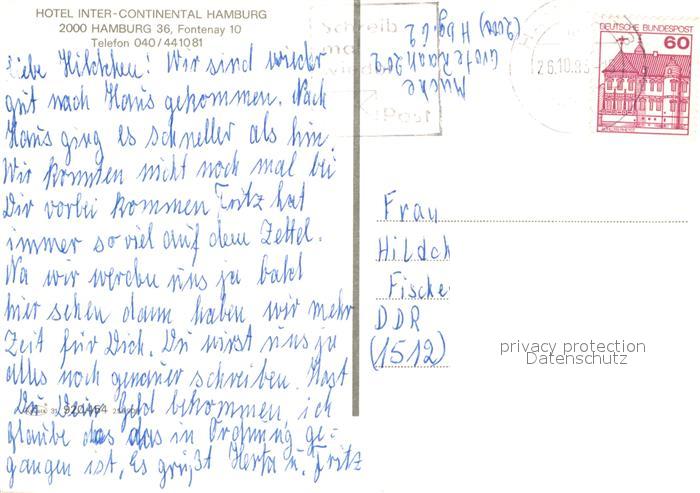 HOTEL INTER-CONTINENTAL HAMBURG
2000 HAMBURG 36, Fontenay 10
Telefon 040/441081
Liebe Hildchen! Wir sind wieder
gut nach Haus gekommen. Nach
Haus ging es schneller als hin.
Wir konnten nicht noch mal bei
Dir vorbei kommen Fritz hat
immer so viel auf dem Zettel.
Na wir werden uns ja bald
hier sehen dann haben wir mehr
Zeit für Dich. Du wirst uns ja
alles noch genauer schreiben. Hast
Du Dein Geld bekommen, ich
glaube das das in Ordnung ge-
gangen ist, Es grüßt Herta u. Fritz
920 454
Mücke
Grote Raak 20 2
(2000) Hbg. 62
Schreib
mal
Post
26.10.
DEUTSCHE BUNDESPOST
60
Frau
Hildch
Fische
DDR
(1512)
privacy protection
Datenschutz